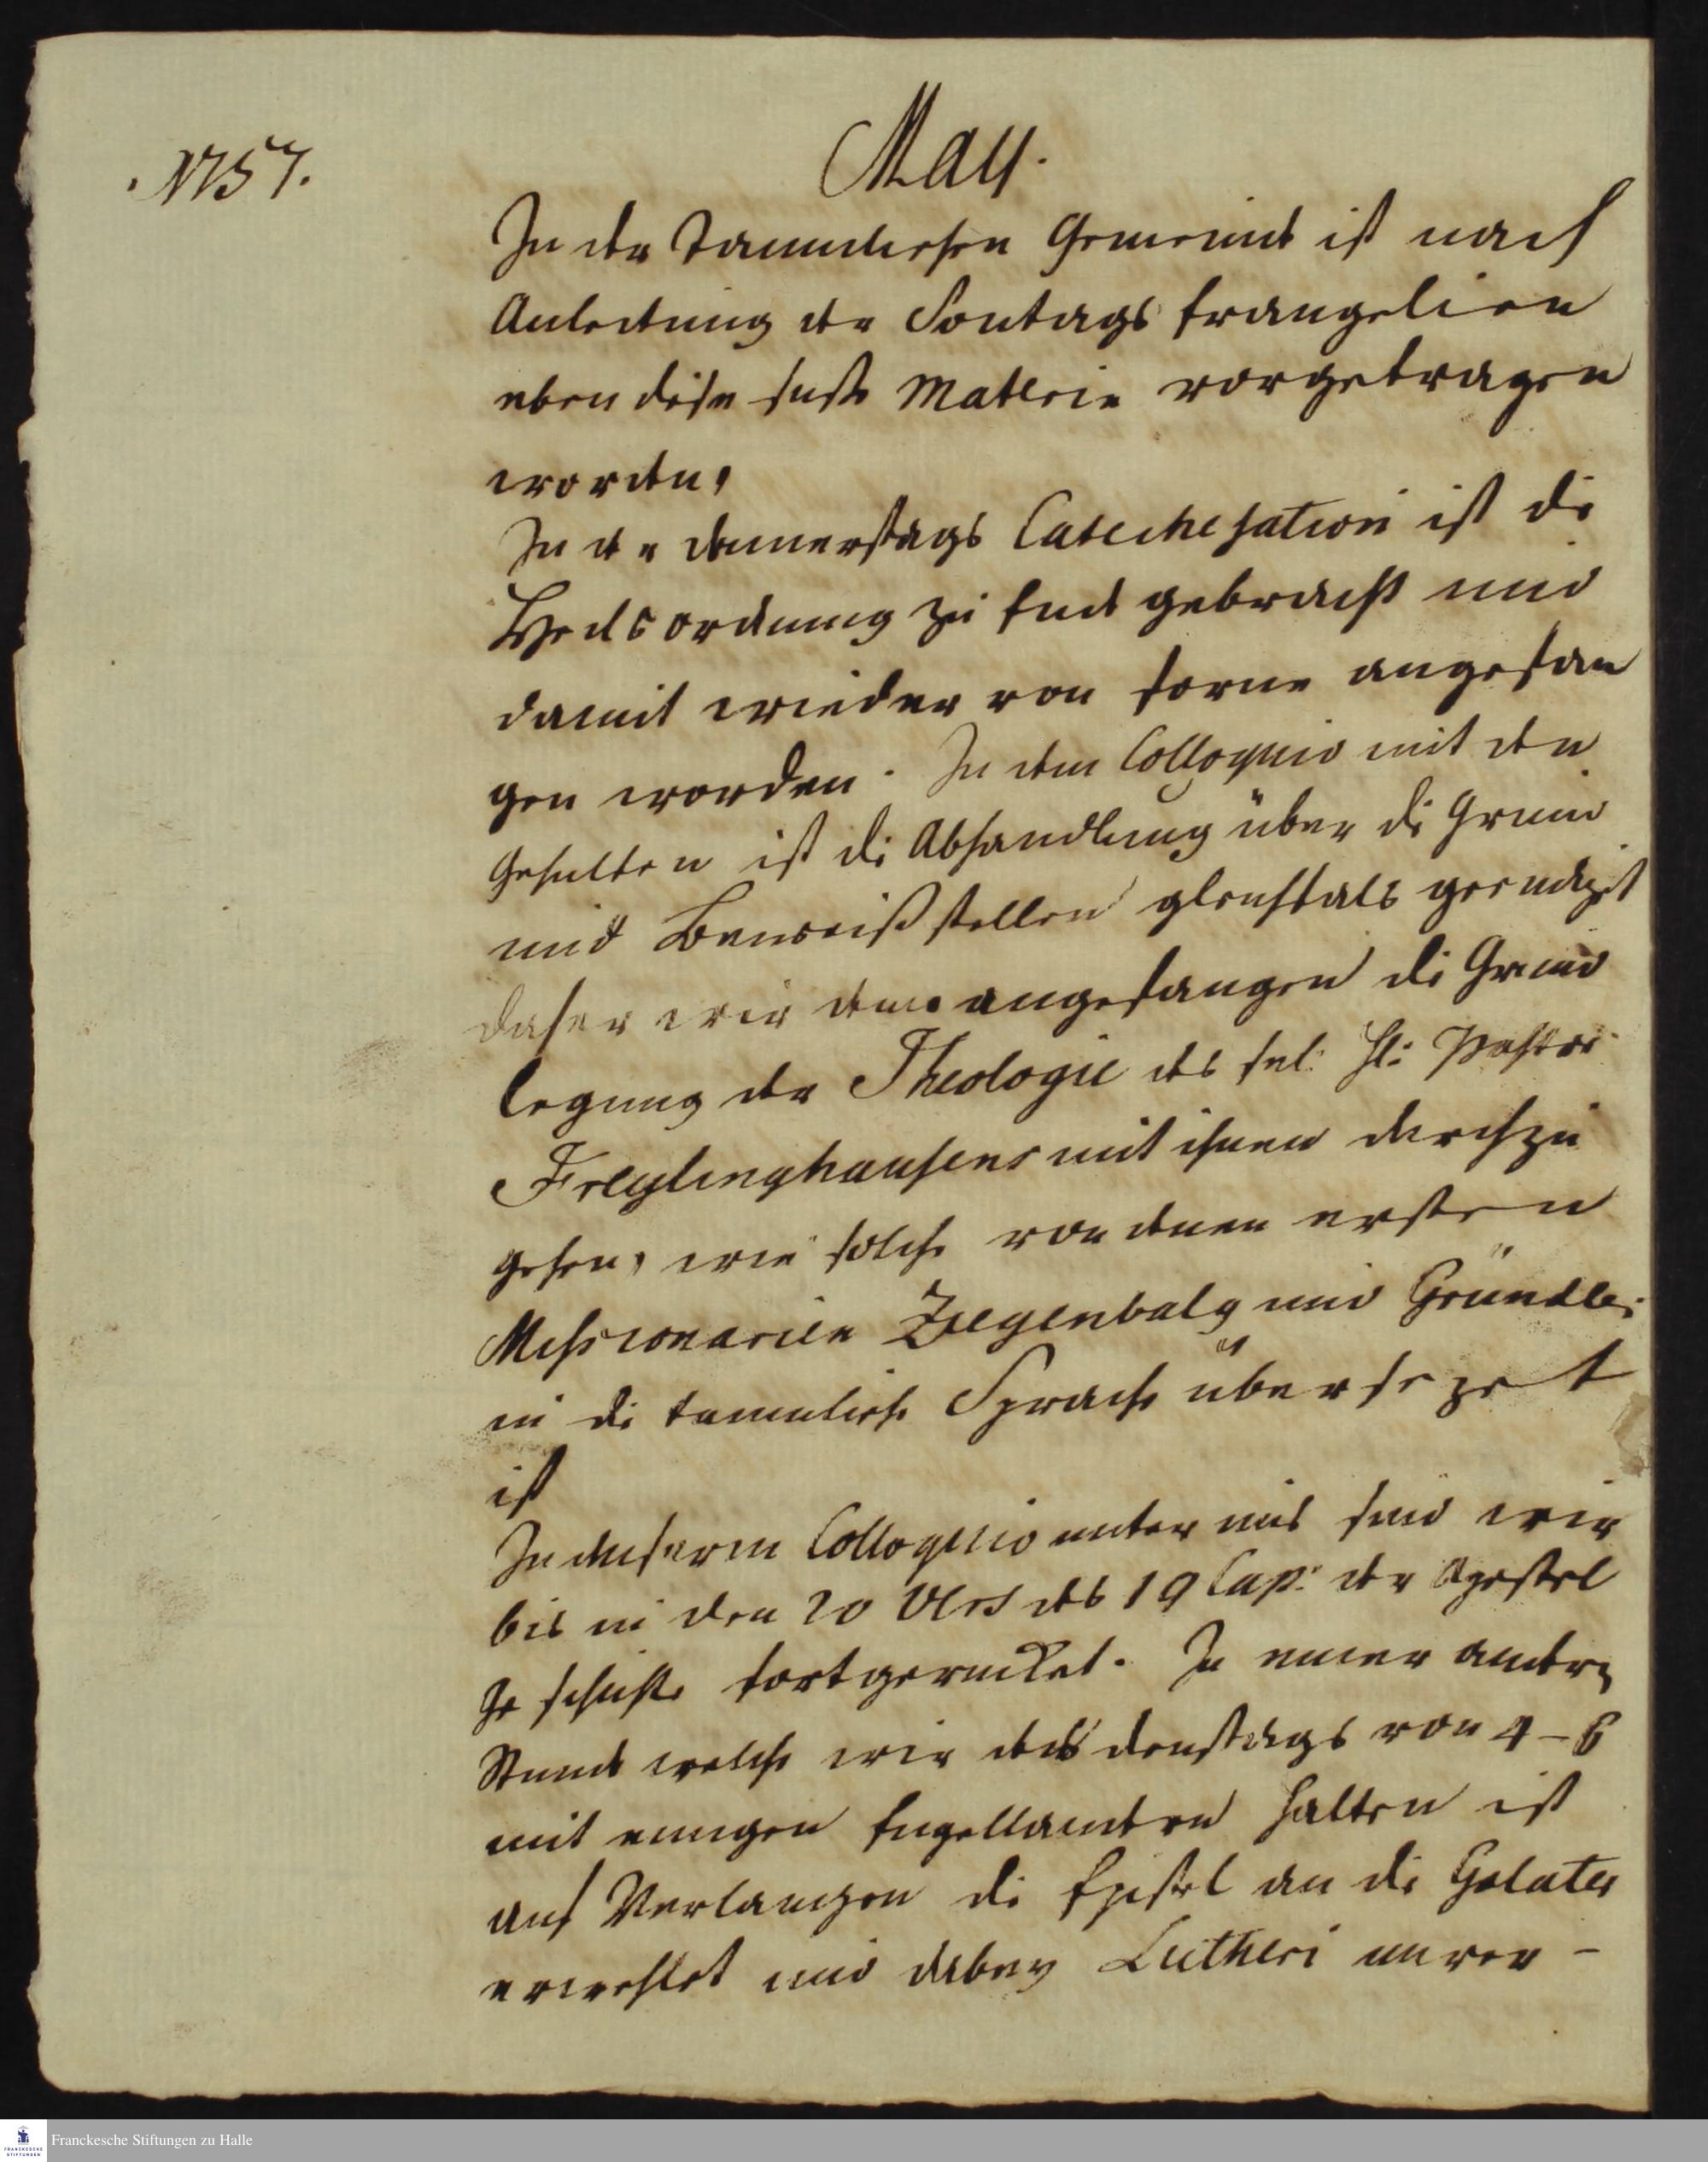 1757.
May.
In der Tamulischen Gemeinde ist nach
Anleitung der Sontags Evangelien
eben diese Materie vorgetragen
worden,
In der donnerstags Catechesation ist die
Heilsordnung zu Ende gebracht und
damit wieder von forne angefan
gen worden. In dem Colloquio mit den
Gehülfen ist die Abhandlung über die Grund
und Beweißstellen gleichfals geendiget
daher wir angefangen die Grund
legung der Theologie des sel. H: Pastor
Freylinghausens mit ihnen durchzu
gehen, wie solche von denen ersten
Missionarien Ziegenbalg und Gründler
in die tamulische Sprache übersezet
ist
In unserm Colloquio unter uns sind wir
bis in den 20 Vers des 19 Cap: der Apostel
Geschichte fortgerucket. In einer andern
Stunde welche wir des dienstags von 4-6
mit einigen Engelländern halten ist
auf Verlangen die Epistel an die Galater
erwehlet und dabey Lutheri unver-
Franckesche Stiftungen zu Halle
FRANCKESCHE
STIFTUNGEN